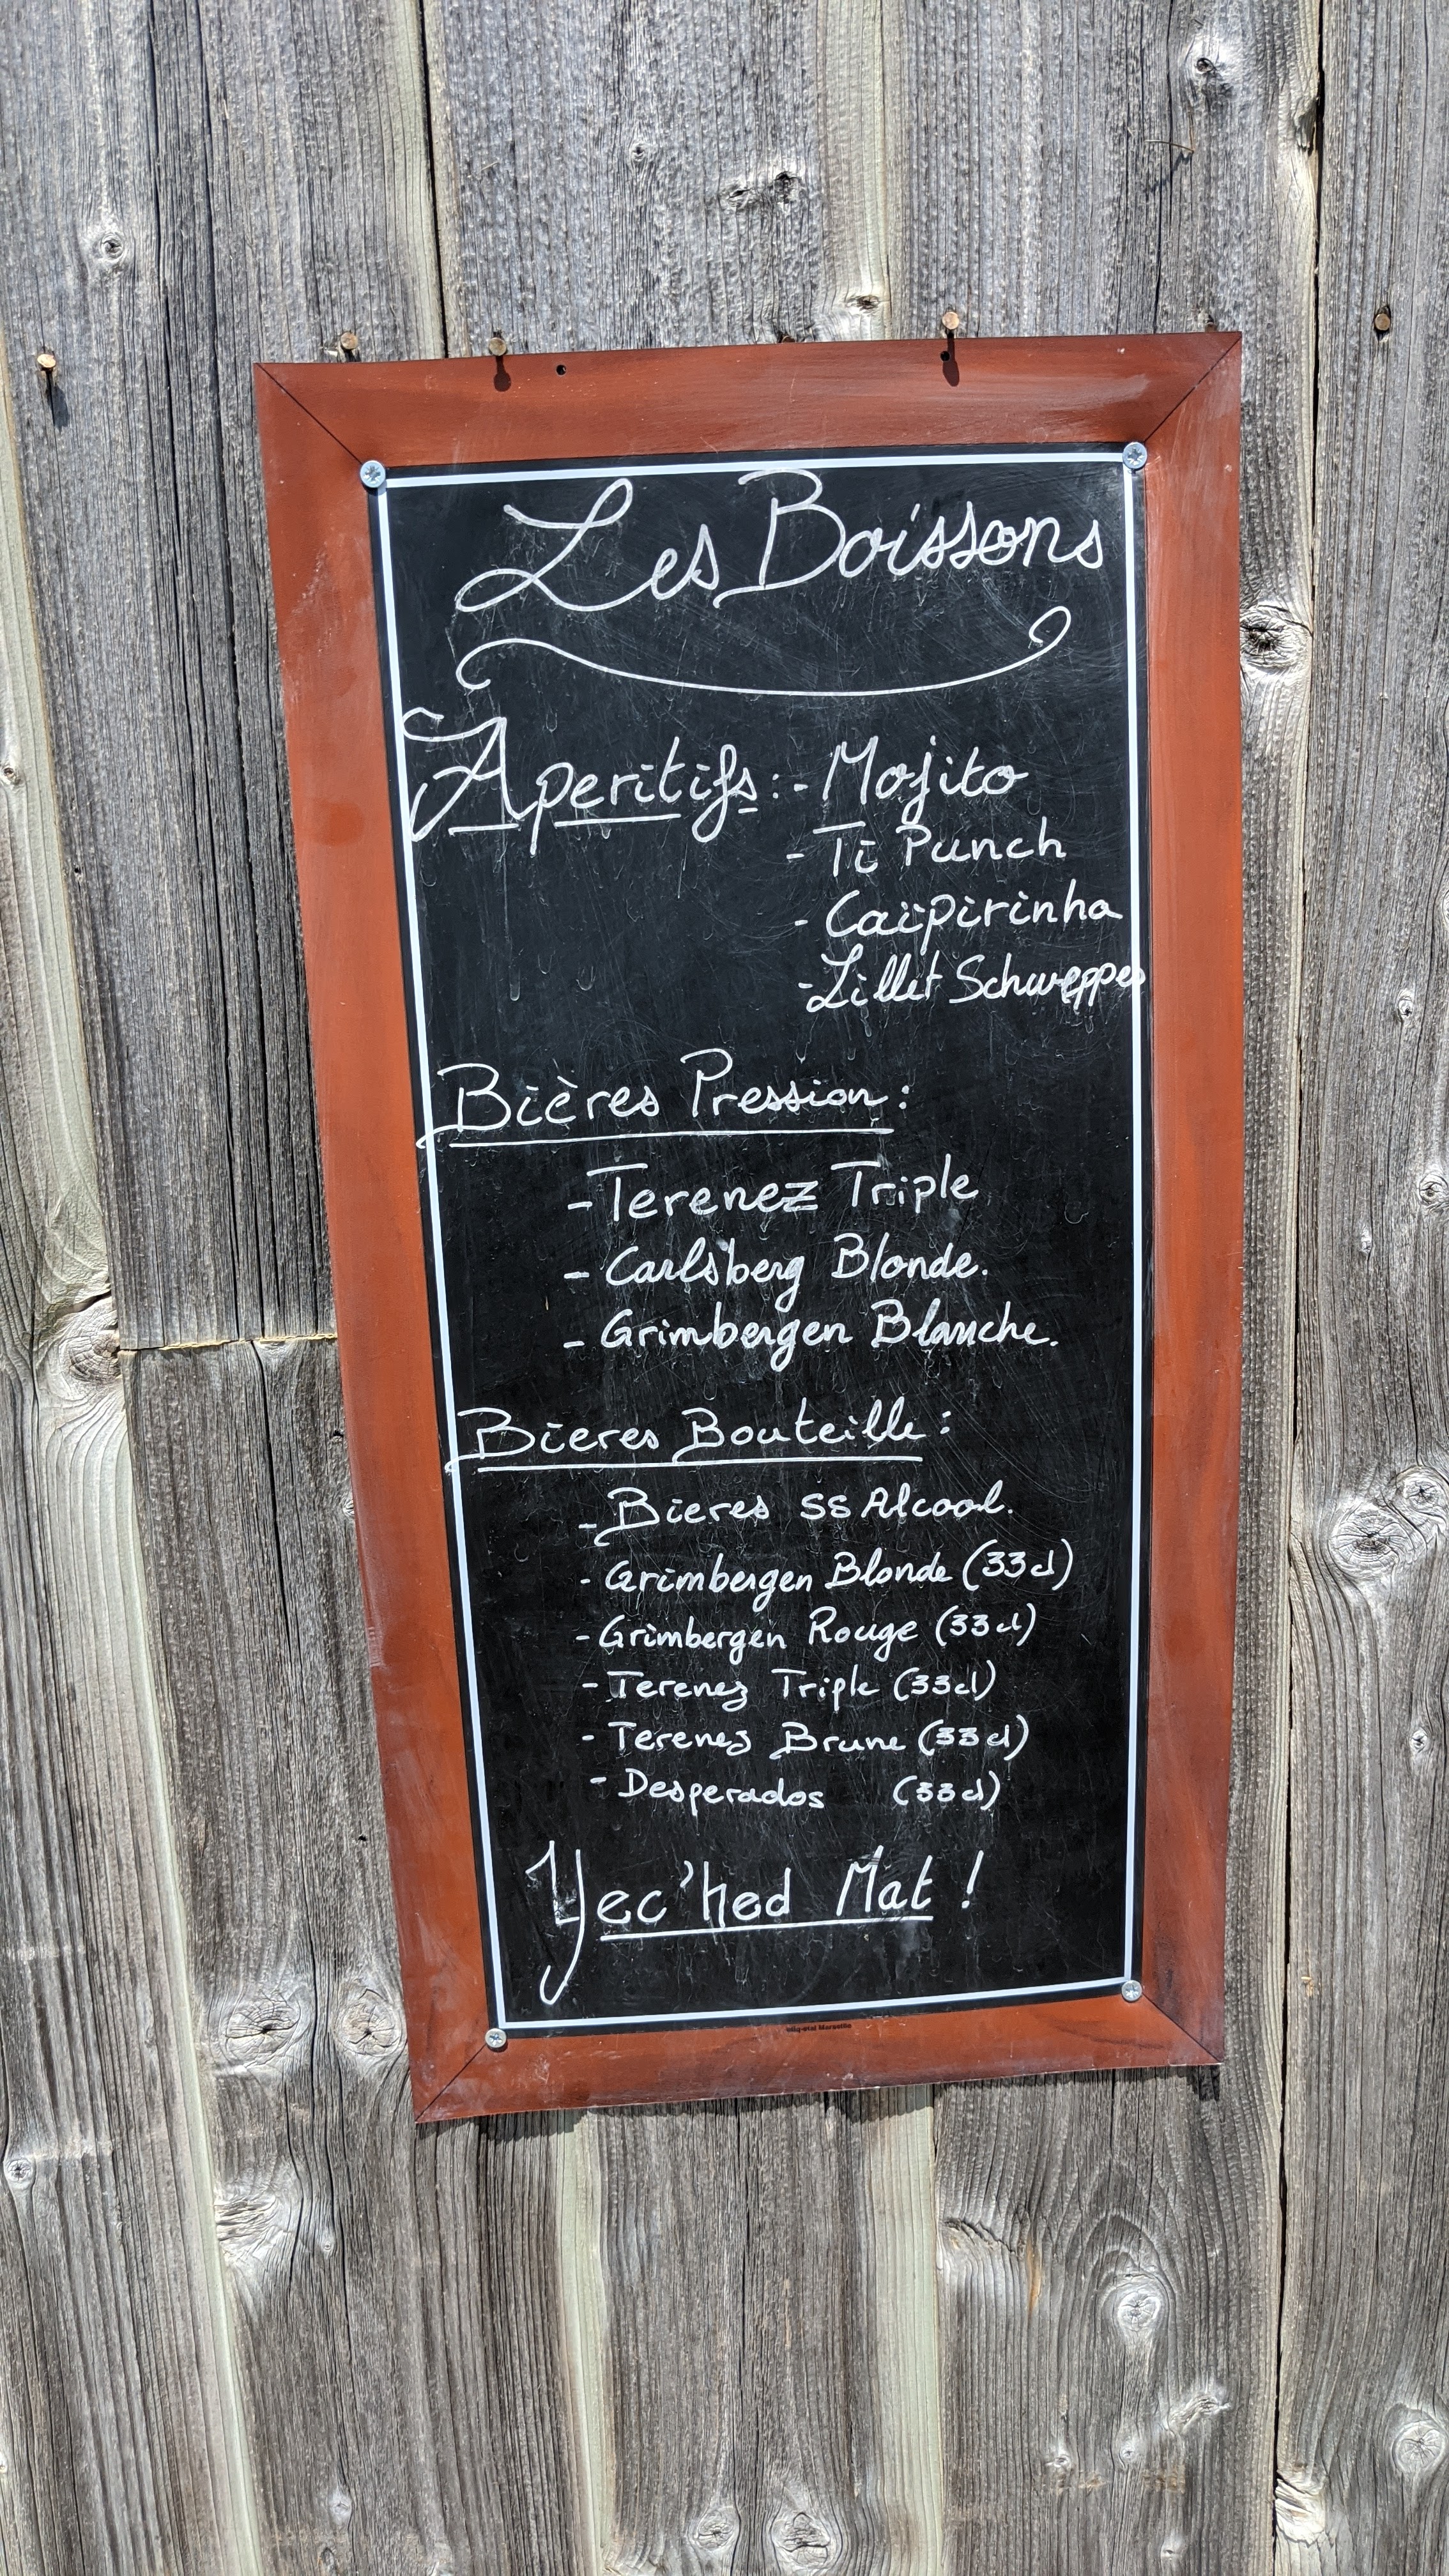 Les Boissons
Aperitifs: - Mojito
- Ti Punch
- Caïpirinha
- Lillet Schweppes
Bières Pression:
- Terenez Triple
- Carlsberg Blonde.
- Grimbergen Blanche.
Bieres Bouteille:
- Bieres ss Alcool.
- Grimbergen Blonde (33cl)
- Grimbergen Rouge (33cl)
- Terenez Triple (33cl)
- Terenez Brune (33cl)
- Desperados (33cl)
Yec'hed Mat !